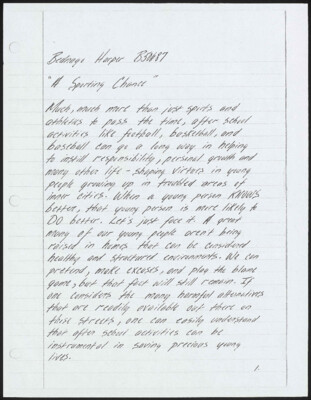 Bednago Harper B37487
"A Sporting Chance"
Much, much more than just sports and
athletics to pass the time, after school
activities like football, basketball, and
baseball can go a long way in helping
to instill responsibility, personal growth and
many other life-shaping virtues in young
people growing up in troubled areas of
inner cities. When a young person KNOWS
better, that young person is more likely to
DO better. Let's just face it. A great
many of our young people aren't being
raised in homes that can be considered
healthy and structured environments. We can
pretend, make excuses, and play the blame
game, but that fact will still remain. If
one considers the many harmful alternatives
that are readily available out there on
those streets, one can easily understand
that after school activities can be
instrumental in saving precious young
lives.
1.